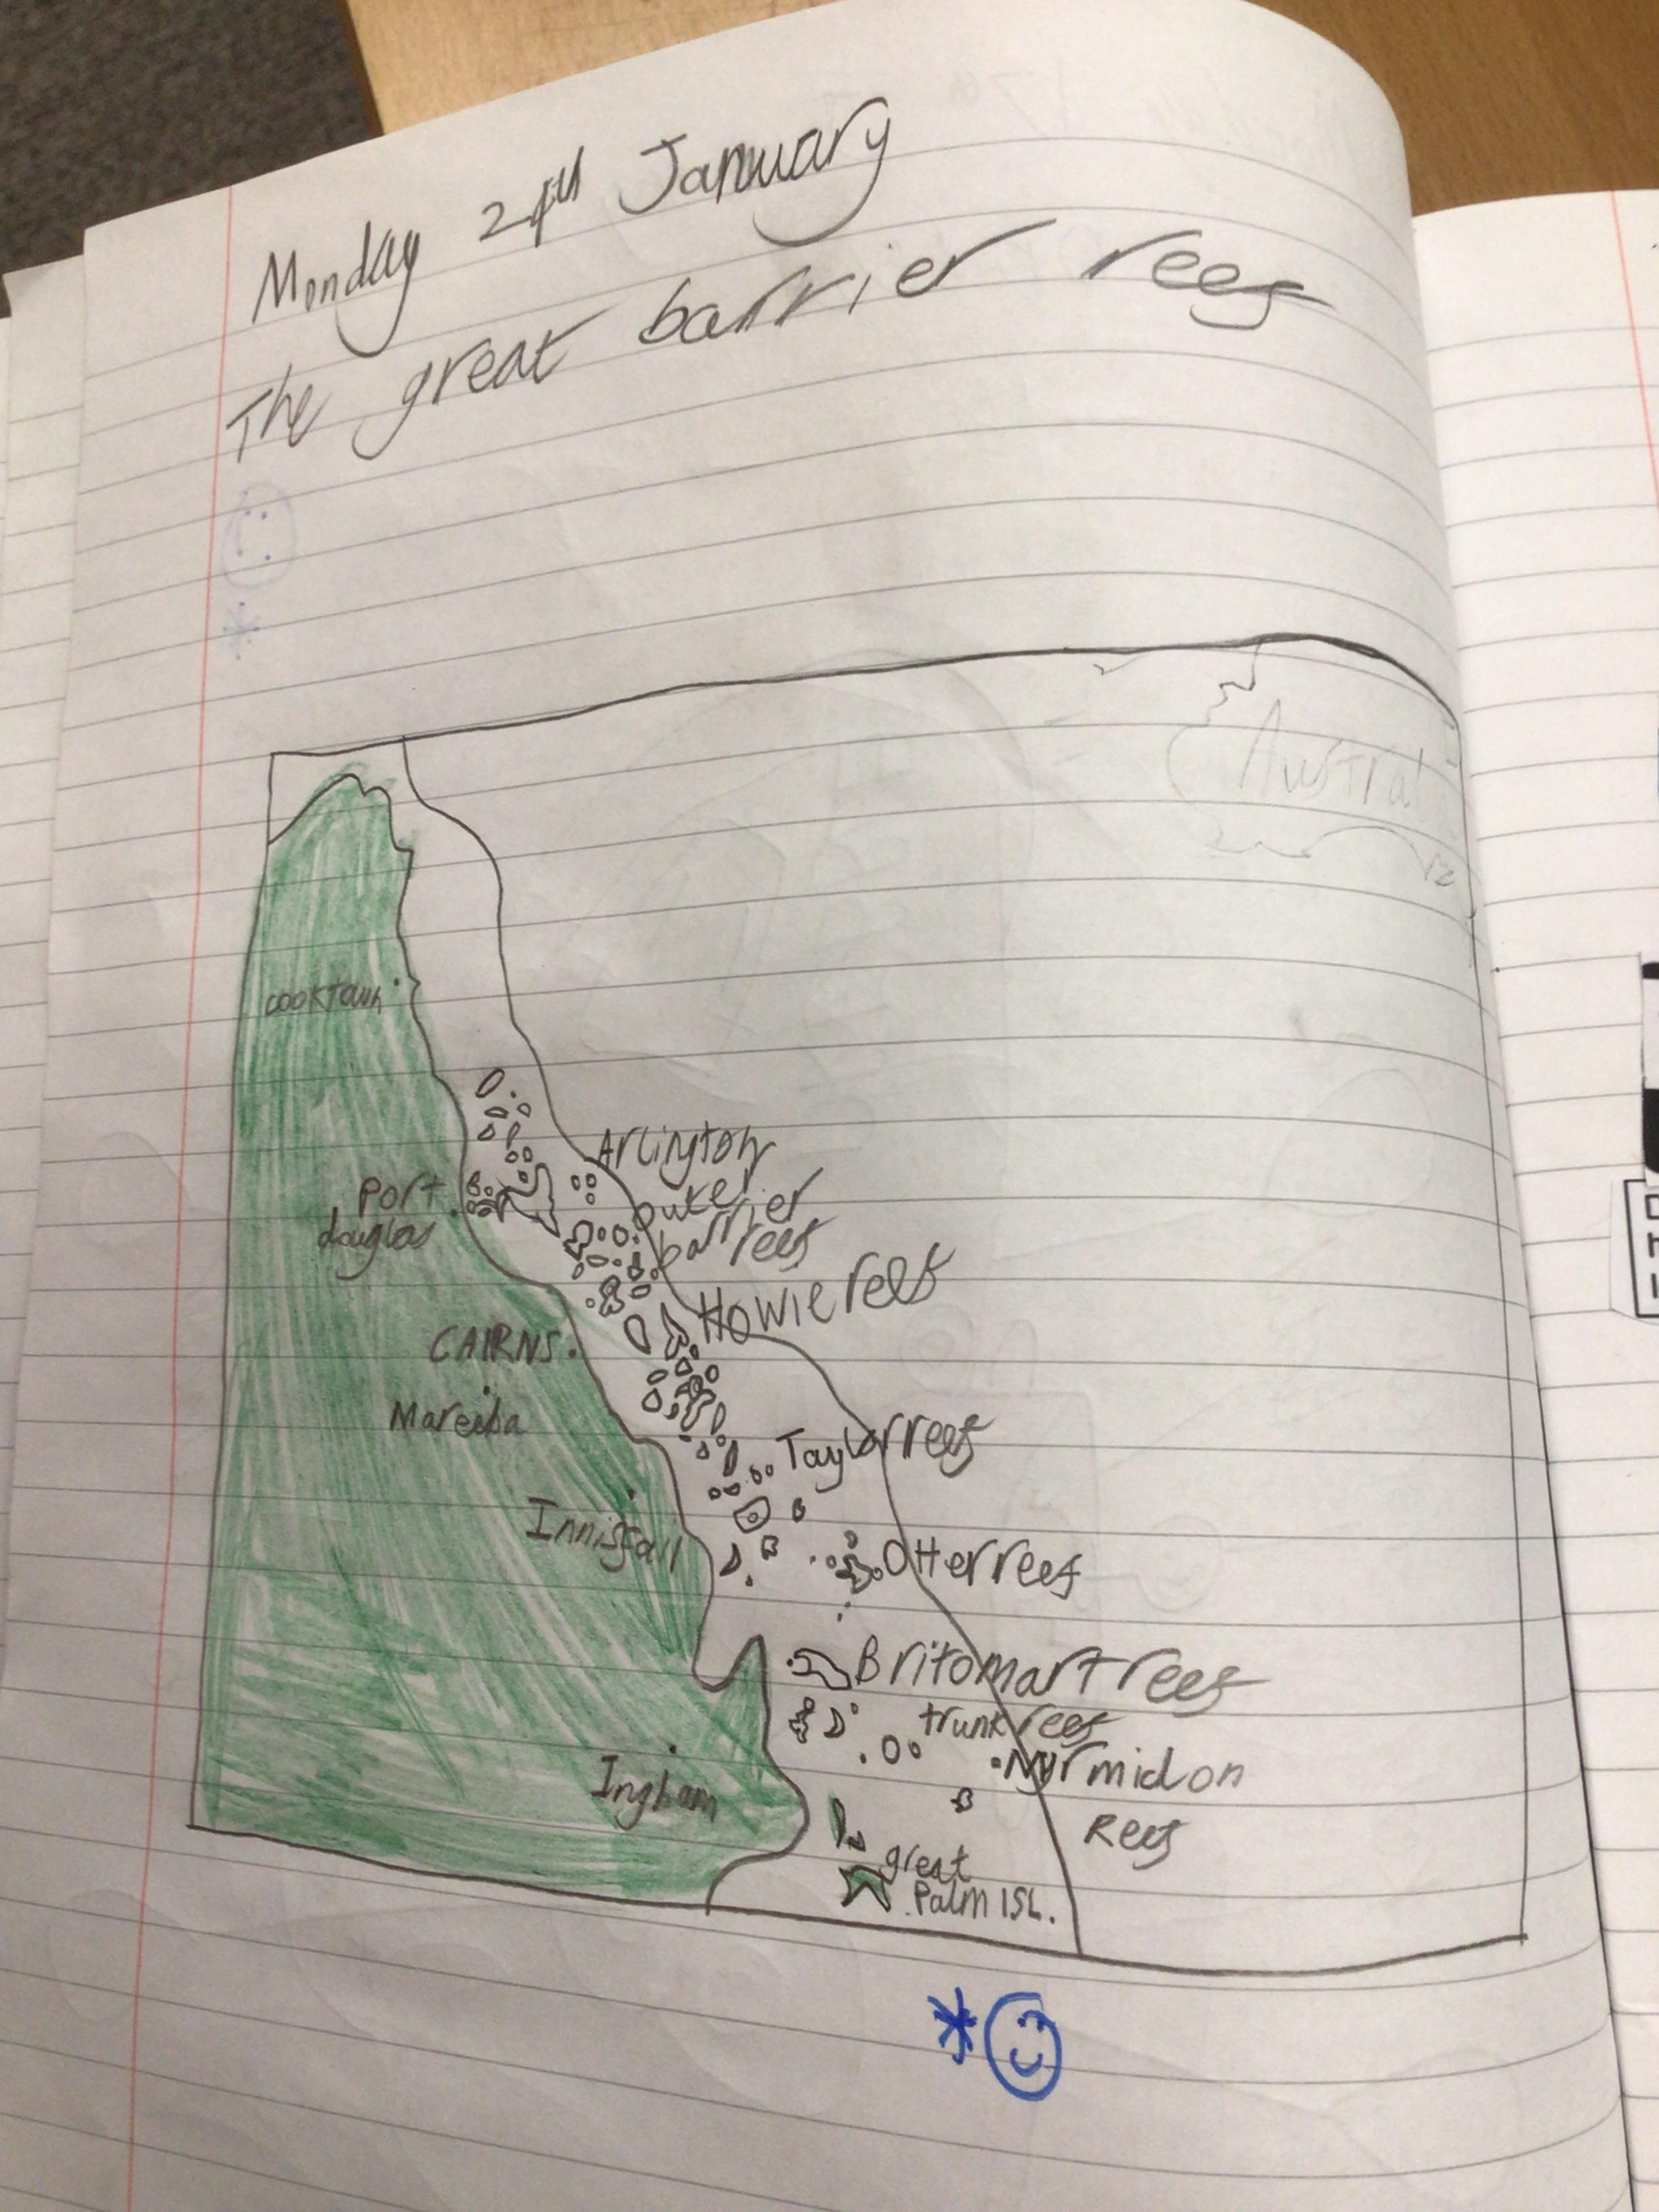 Monday 24th January
The great barrier reef
Austral
cooktown
Arlington
Port
douglas
outer
barrier
reef
Howie reef
CAIRNS
Mareiba
Taylor reef
Innisfail
Otter reef
Britomart reef
trunk reef
Myrmidon
Reef
Ingham
great
Palm ISL.